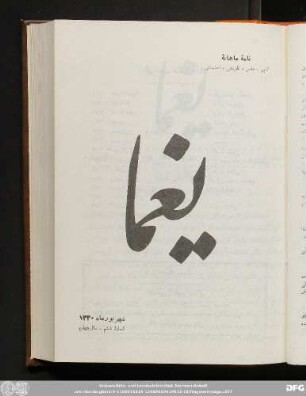 نامهٔ ماهانهٔ
ادبی ، هنری ، تاریخی ، اجتماعی
یغما
شهریور ماه ۱۳۳۰
شمارهٔ ششم - سال چهارم
DFG